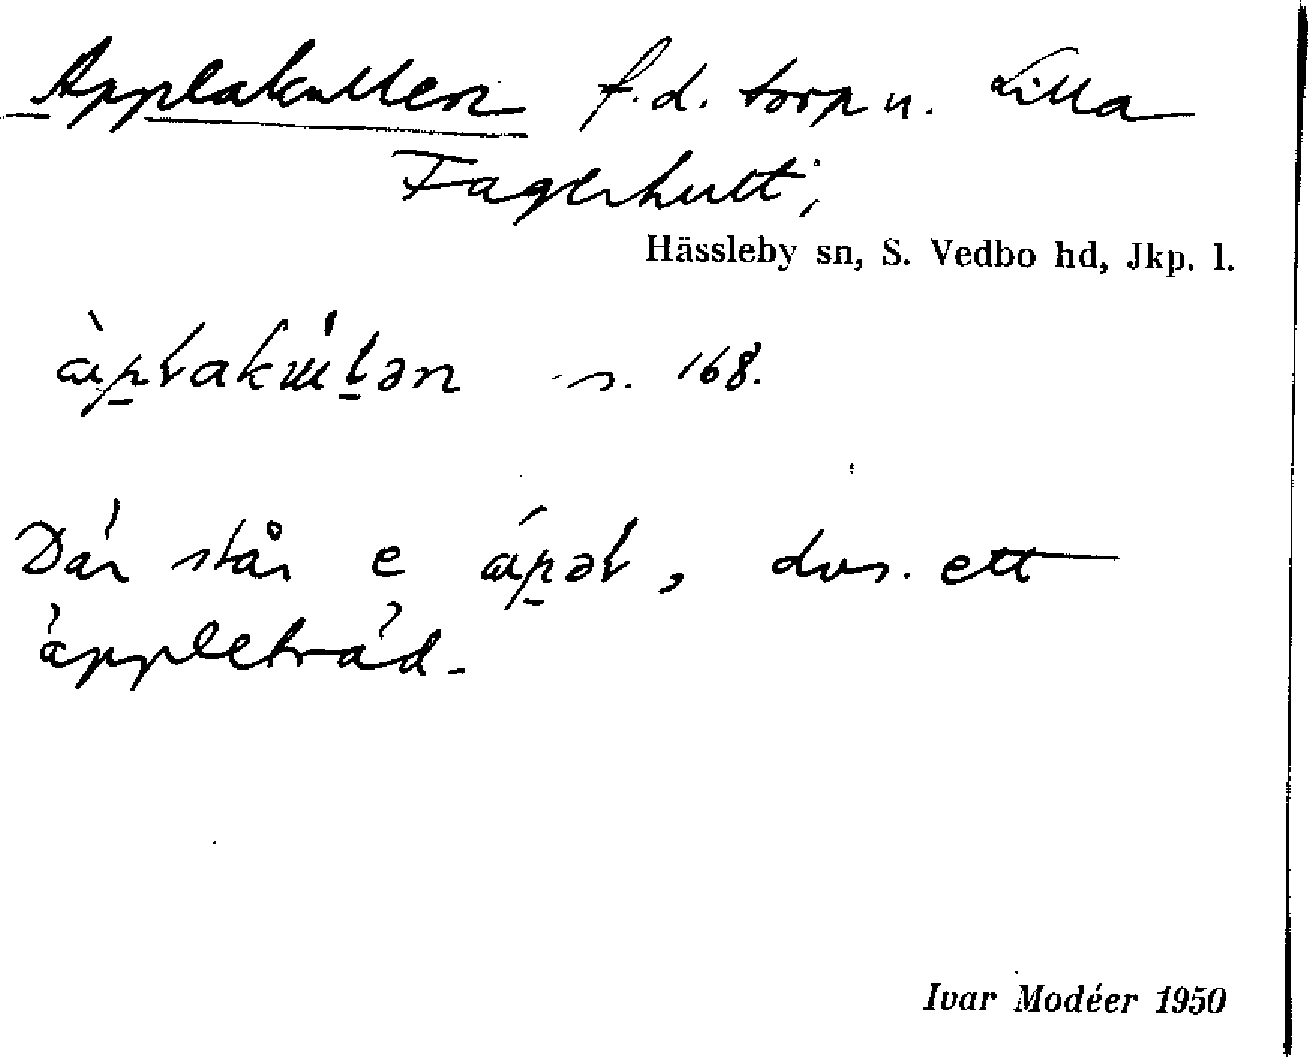 Applakullen f.d. torp u. Lilla
Fagerhult;
Hässleby sn, S. Vedbo hd, Jkp. l.
s. 168.
Där står e , dvs. ett
äppleträd.
Ivar Modéer 1950